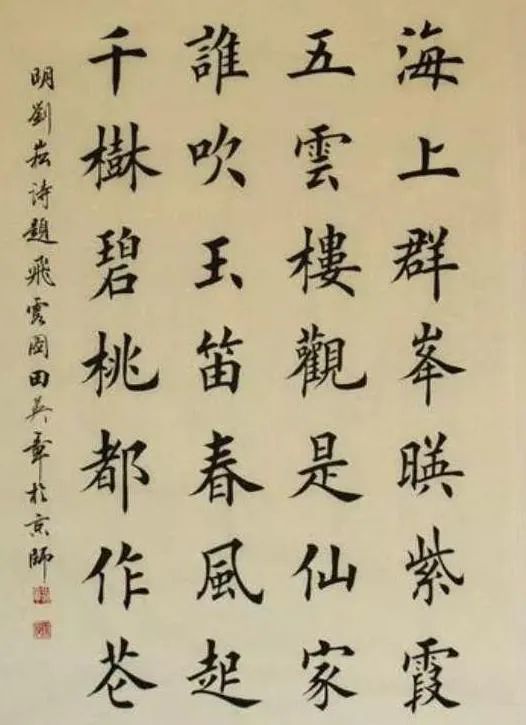 海上群峯暎紫霞
五雲樓觀是仙家
誰吹玉笛春風起
千樹碧桃都作花
明劉菘詩題飛雲圖田英章於京師